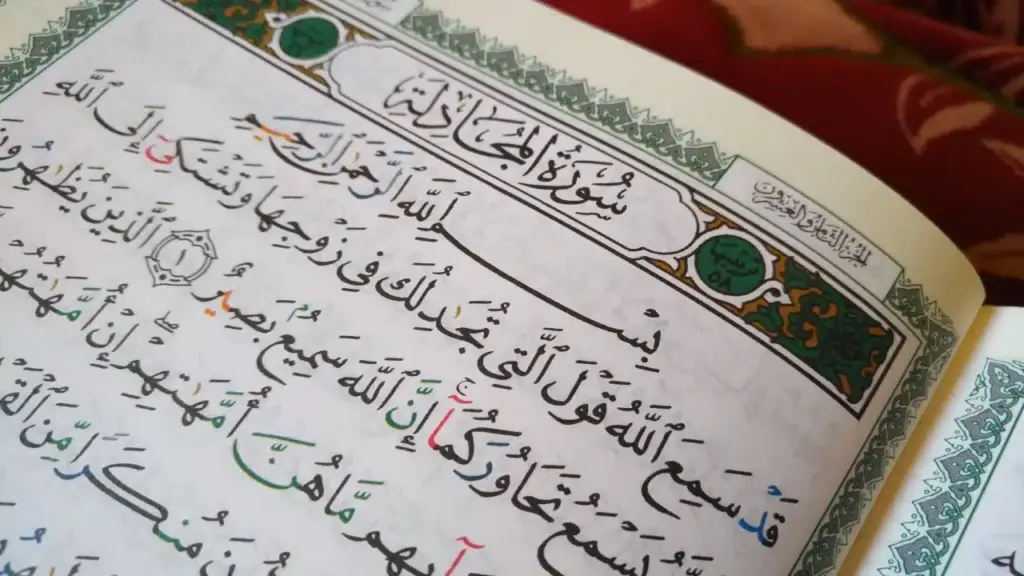 الجزء الثامن والعشرون
سُورَةُ المُجَادلَةِ
ترتيبها
٥٨
بِسْمِ ٱللَّهِ ٱلرَّحْمَٰنِ ٱلرَّحِيمِ
قَدْ سَمِعَ ٱللَّهُ قَوْلَ ٱلَّتِي تُجَٰدِلُكَ فِي زَوْجِهَا وَتَشْتَكِيٓ إِلَى ٱللَّهِ
يَسْمَعُ تَحَاوُرَكُمَآ ۚ إِنَّ ٱللَّهَ سَمِيعٌۢ بَصِيرٌ ١ ٱلَّذِينَ يُظَٰهِرُونَ
مَّا هُنَّ أُمَّهَٰتِهِمْ ۖ إِنْ أُمَّهَٰتُهُمْ
مُنكَرًا مِّنَ ٱلْقَوْلِ